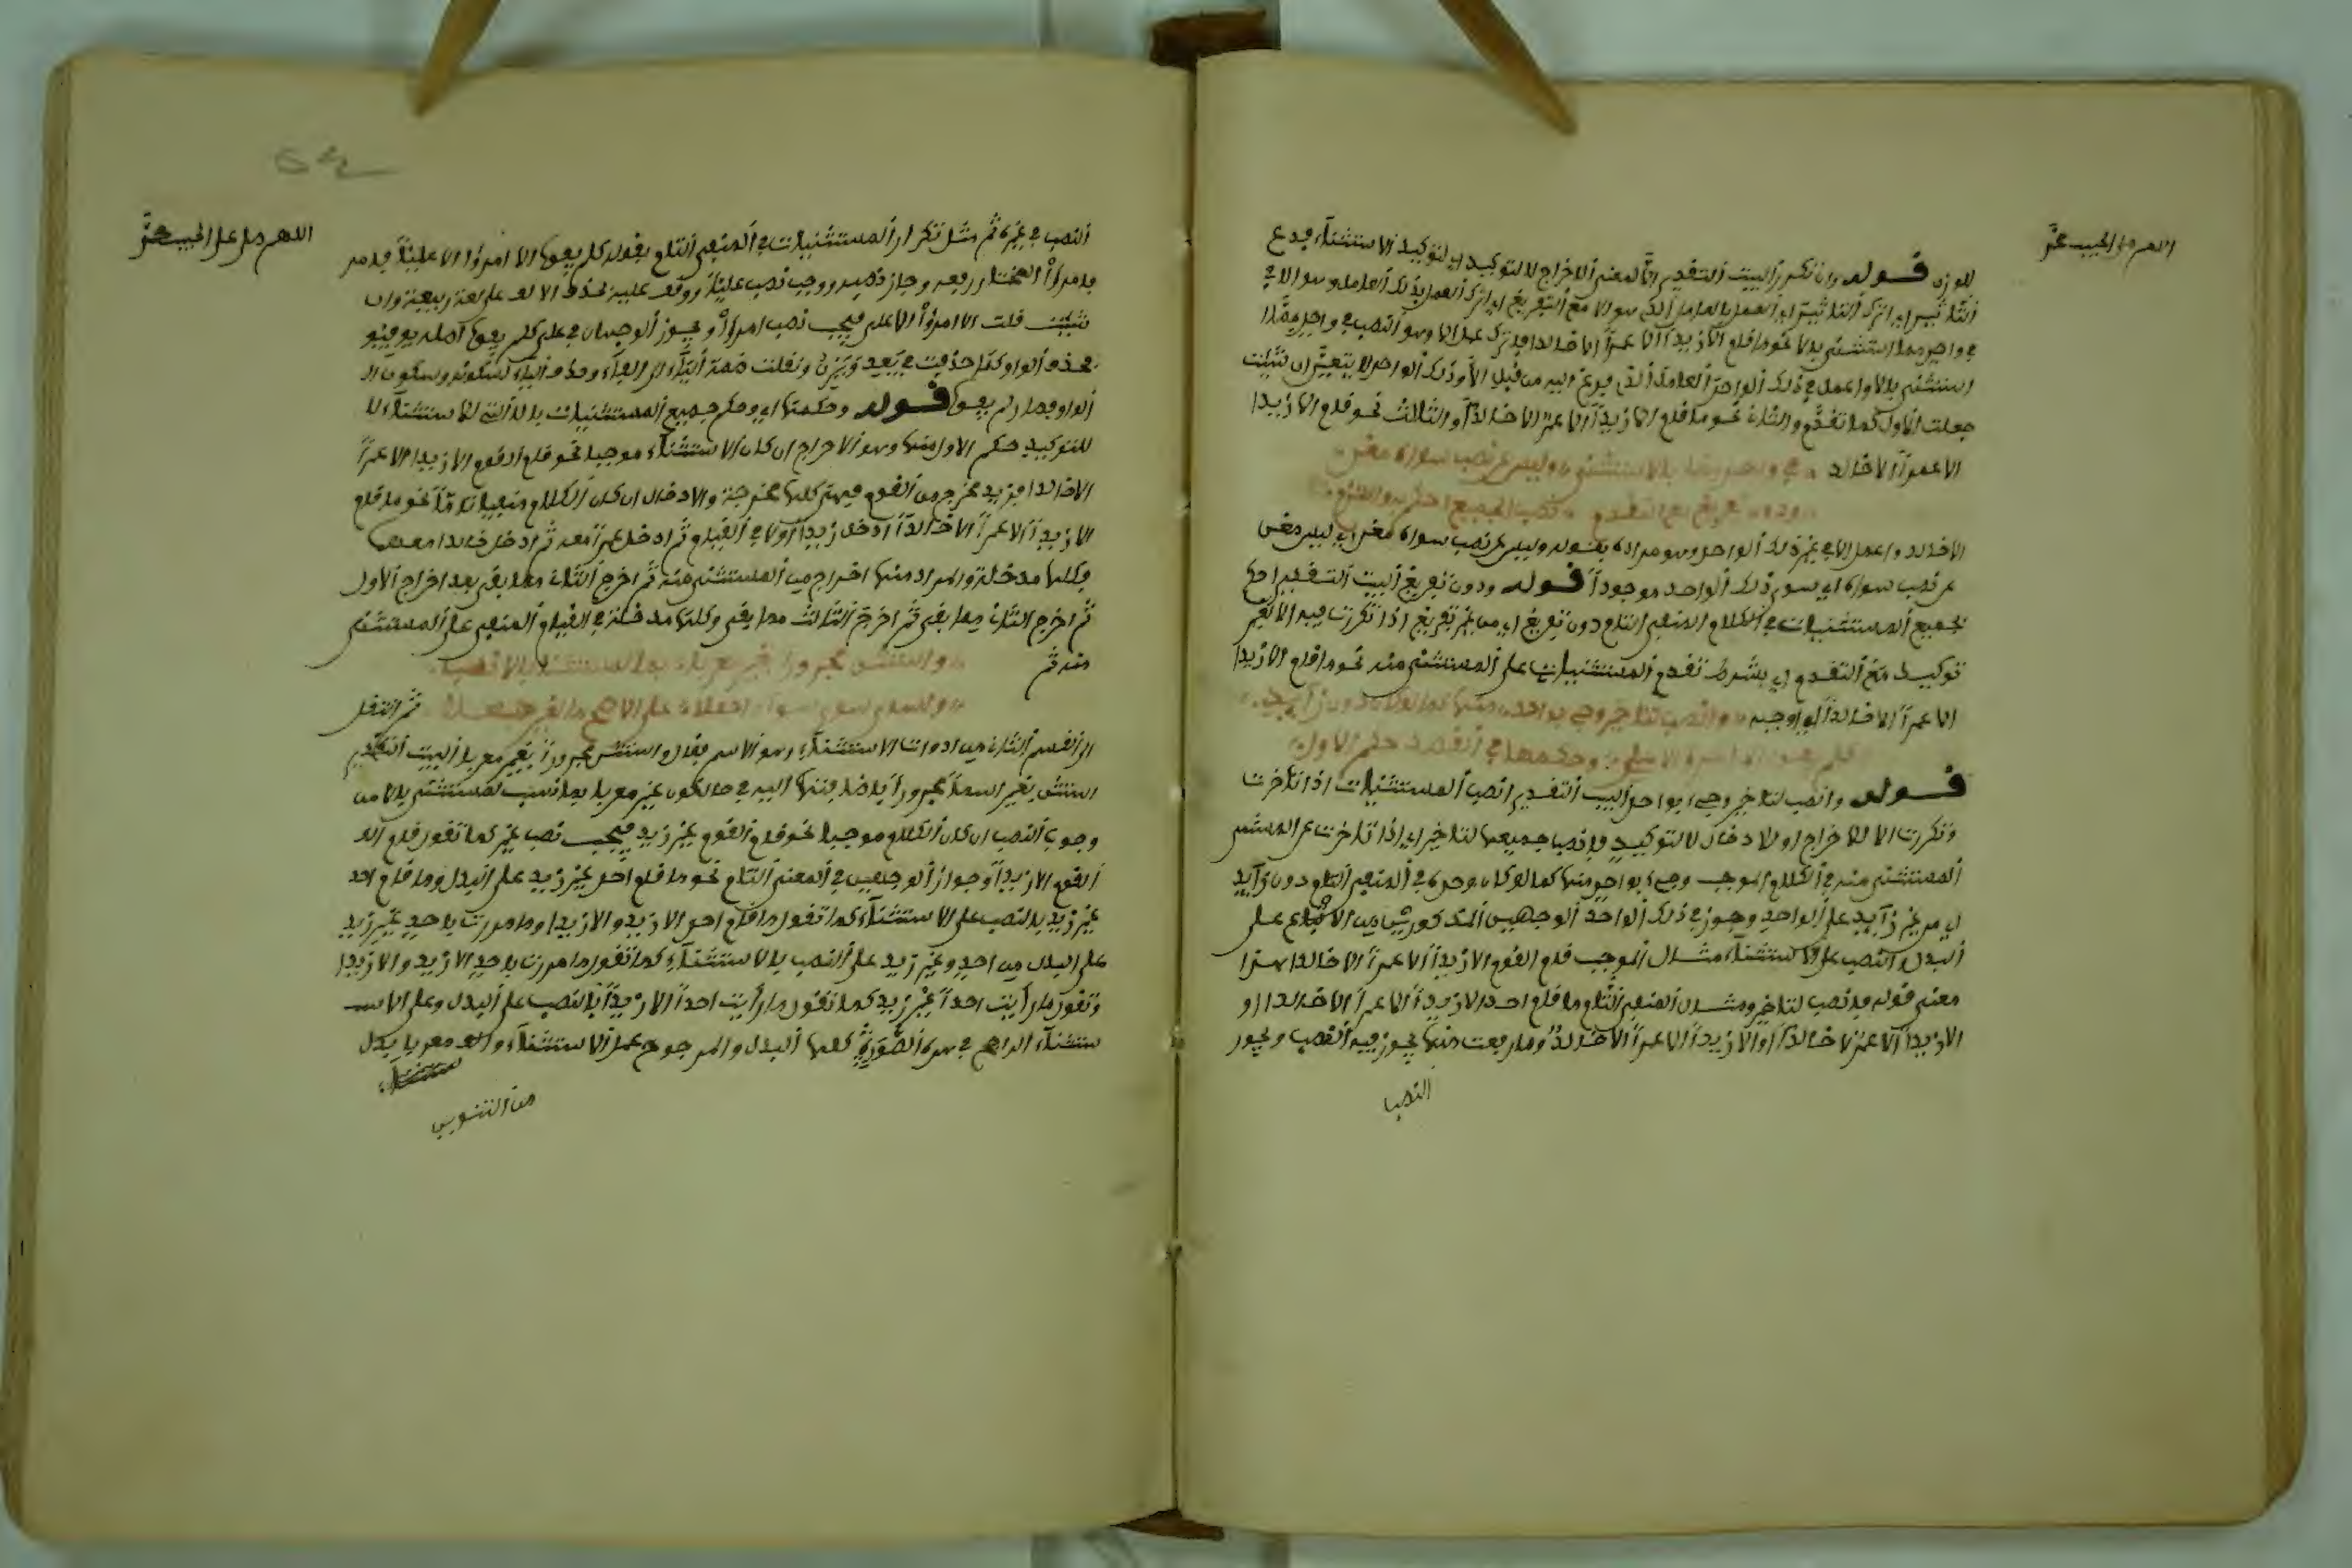 اللهم صل على الحبيب محمد
للوزن قوله وان تكرر البيت التقدير اما لمعنى الاخراج لا لتوكيد اي لتوكيد الاستثناء فدع
التاثير اي اترك التاثير اي العمل بالعامل الذي هو الا مع التفريغ اي اترك العمل بذلك العامل وهو الا في
في واحد مما استثنى بالا نحو ما قام الا زيد الا عمرا الا خالدا فاترك عمل الا وهو النصب في واحد مما
استثني بالا واعمل في ذلك الواحد العامل الذي فرغ اليه من قبل الا وذلك الواحد لا يتعين ان شئت
جعلت الاول كما تقدم والثاني نحو ما قام الا زيدا الا عمرو الا خالدا والثالث نحو قام الا زيدا
الا عمرا الا خالد في واحد مما بالا استثني وليس عن نصب سواه مغني
ودون تفريغ مع التقدم نصب الجميع احكم به والتزم
الا خالد واعمل الا في غير ذلك الواحد وهو مراده بقوله وليس عن نصب سواه مغني اي ليس مغن
عن نصب سواه اي سوى ذلك الواحد موجودا قوله ودون تفريغ البيت التقدير احكم
لجميع المستثنيات في الكلام المنفي التام دون تفريغ اي من غير تفريغ اذا تكررت فيه الا لغير
توكيد مع التقدم اي بشرط تقدم المستثنيات على المستثنى منه نحو ما قام الا زيدا
الا عمرا الا خالدا وانصب لتاخير وجئ بواحد منها كما لو كان دون زايد
كلم يفوا الا امرؤ الا علي وحكمها في القصد حكم الاول
قوله وانصب لتاخير وجئ بواحد البيت التقدير انصب المستثنيات اذا تاخرت
وتكررت الا للاخراج او للادخال لا لتوكيد فانصب جميعها لتاخير اي اذا تاخرت عن المستثنى
المستثنى منه في الكلام الموجب وجئ بواحد منها كما لو كان وحده في المنفي التام دون زايد
اي من غير زايد على الواحد وجوز في ذلك الواحد الوجهين المذكورين من الاتباع على
البدل والنصب على الاستثناء مثال الموجب قام القوم الا زيدا الا عمرا الا خالدا هذا
معنى قوله فانصب لتاخير ومثال المنفي التام ما قام احد الا زيد الا عمرا الا خالدا او
الا زيدا الا عمرو الا خالدا او الا زيدا الا عمرا الا خالد وما رفعت منها يجوز فيه النصب ويجوز
النصب
اللهم صل على الحبيب محمد
النصب في غيره ثم مثل تكرار المستثنيات في المنفي التام بقوله كلم يفوا الا امرؤ الا عليا فامر
فامرؤ المختار رفعه وجاز نصبه ووجب نصب عليا ووقف عليه بحذف الالف على لغة ربيعة وان
شئت قلت الا امرؤا الا علي فيجب نصب امرؤا ويجوز الوجهان في علي كلم يفوا اصله يوفيوا
فحذف الواو كما حذفت في يعد ويزن ونقلت ضمة الياء الى الفاء وحذف الياء لسكونه وسكون ال
الواو فصار لم يفوا قوله وحكمها اي وحكم جميع المستثنيات بالا التي للاستثناء لا
للتوكيد حكم الاول منها وهو الاخراج ان كان الاستثناء موجبا نحو قام القوم الا زيدا الا عمرا
الا خالدا فزيد مخرج من القوم فهي كلها مخرجة والادخال ان كان الكلام منفيا تاما نحو ما قام
الا زيدا الا عمرا الا خالدا ادخل زيدا اولا في القيام ثم ادخل عمرا معه ثم ادخل خالدا معهما
وكلها مدخلة والمراد منها اخراج من المستثنى منه ثم اخرج الثاني مما بقي بعد اخراج الاول
ثم اخرج الثاني مما بقي ثم اخرج الثالث مما بقي وكلها مدخلة في القيام المنفي على المستثنى
منه ثم واستثن مجرورا بغير معربا بما لمستثنى بالا نسبا
ولسوى سوى سواء اجعلا على الاصح ما لغير جعلا ثم انتقل
الى القسم الثاني من ادوات الاستثناء وهو الاسم فقال واستثن مجرورا بغير معربا البيت التقدير
استثن بغير اسما مجرورا باضافتها اليه في حال كون غير معربا بما نسب لمستثنى بالا من
وجوب النصب ان كان الكلام موجبا نحو قام القوم غير زيد فيجب نصب غير كما تقول قام الق
القوم الا زيدا وجواز الوجهين في المعنى التام نحو ما قام احد غير زيد على البدل وما قام احد
غير زيد بالنصب على الاستثناء كما تقول ما قام احد الا زيد والا زيدا وما مررت باحد غير زيد
على البدل من احد وغير زيد على النصب بالا استثناء كما تقول ما مررت باحد الا زيد والا زيدا
وتقول ما رأيت احدا غير زيد كما تقول ما رأيت احدا الا زيدا بالنصب على البدل وعلى الاس
ستثناء الراجح في هذه الصورة كلها البدل والمرجوح عمل الاستثناء والف معربا بدل
من التنوين